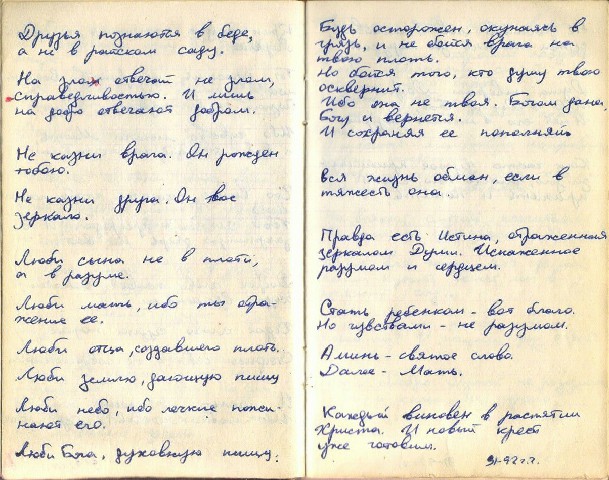 Друзья познаются в беде,
а не в райском саду.
На зло отвечай не злом,
справедливостью. И лишь
на добро отвечают добром.
Не казни врага. Он рожден
тобою.
Не казни друга. Он твое
зеркало.
Люби сына не в плоти,
а в разуме.
Люби мать, ибо ты отра-
жение ее.
Люби отца, создавшего плоть.
Люби землю, дающую пищу
Люби небо, ибо легкие
нают его.
Люби Бога, духовную пищу.
Будь осторожен, окунаясь в
грязь, и не бойся врага на
твою плоть.
Но бойся того, кто душу твою
осквернит.
Ибо она не твоя. Богом дана,
Богу и вернется.
И сохраняя ее пополняй
вся жизнь обман, если в
тяжесть она.
Правда есть Истина, отраженная
зеркалом Души. Искаженное
разумом и сердцем.
Стать ребенком - вот благо.
Но чувствами - не разумом.
Аминь - святое слово.
Далее - Мать.
Каждый виновен в распятии
Христа. И новый крест
уже готовим.
91-92 г.г.